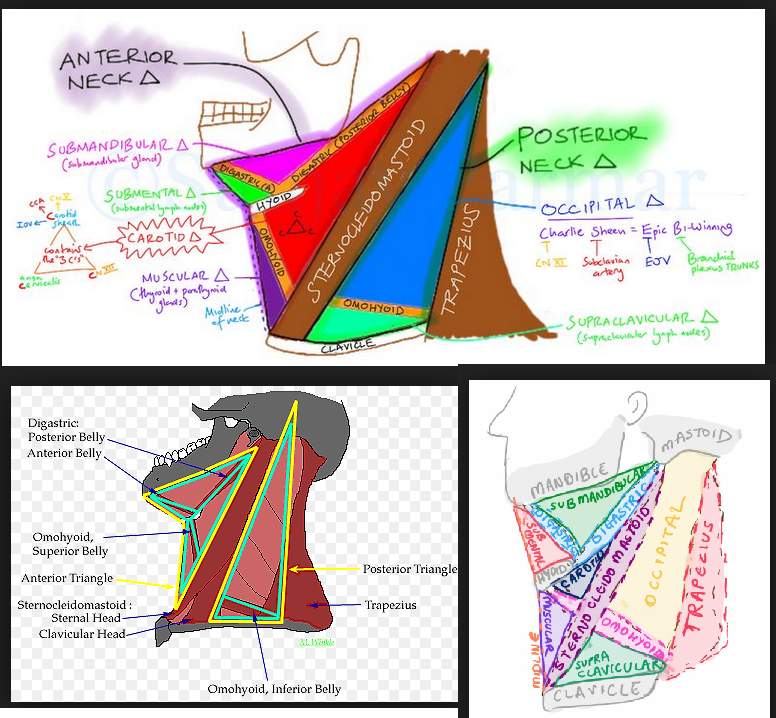 ANTERIOR
NECK △
SUBMANDIBULAR △
(submandibular gland)
SUBMENTAL △
(submental lymph nodes)
CCA
CN X
IJV
Carotid
sheath
contains
the "3 C's"
ansa
cervicalis
CN XII
CAROTID △
MUSCULAR △
(thyroid + parathyroid
glands)
Midline
of neck
DIGASTRIC (A)
DIGASTRIC (POSTERIOR BELLY)
HYOID
C
C
C
OMOHYOID
STERNOCLEIDOMASTOID
TRAPEZIUS
OMOHYOID
CLAVICLE
POSTERIOR
NECK △
OCCIPITAL △
Charlie Sheen = Epic Bi-Winning
CN XI
Subclavian
artery
EJV
Brachial
plexus TRUNKS
SUPRACLAVICULAR △
(supraclavicular lymph nodes)
Digastric:
Posterior Belly
Anterior Belly
Omohyoid,
Superior Belly
Anterior Triangle
Sternocleidomastoid :
Sternal Head
Clavicular Head
Posterior Triangle
Trapezius
M. Winkle
Omohyoid, Inferior Belly
MASTOID
MANDIBLE
SUBMANDIBULAR
DIGASTRIC
DIGASTRIC
SUB
MENTAL
HYOID
CAROTID
STERNOCLEIDOMASTOID
OCCIPITAL
TRAPEZIUS
MUSCULAR
OMOHYOID
MIDLINE
SUPRA
CLAVICULAR
CLAVICLE